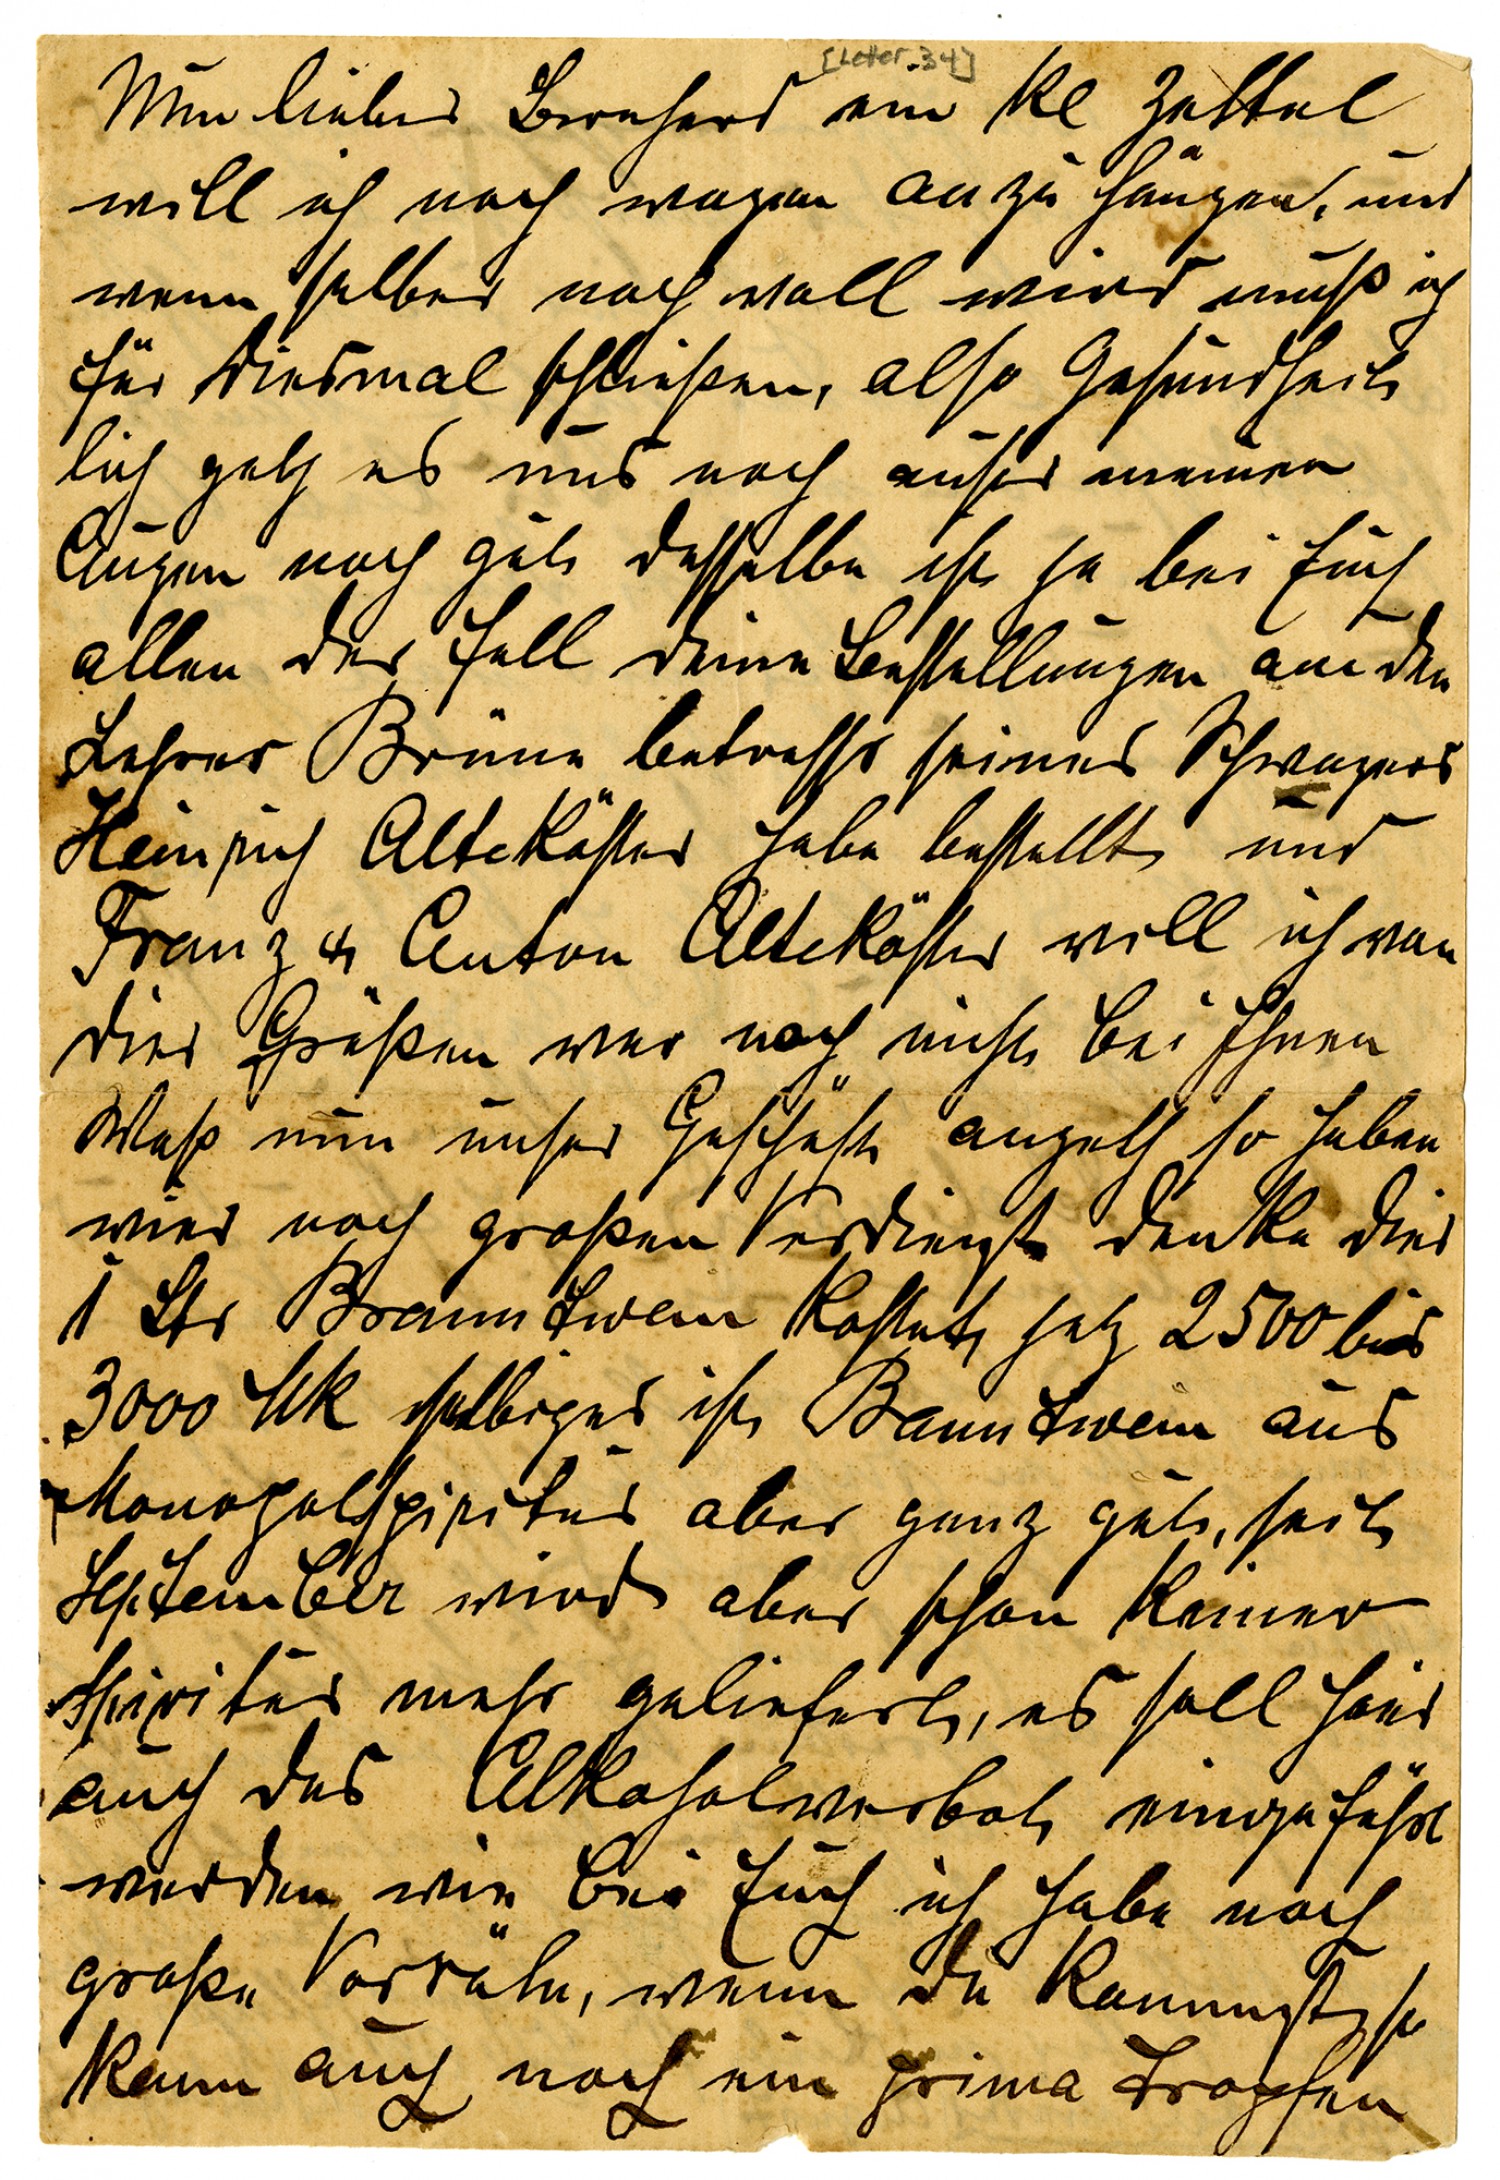 [Letter 34]
Mein lieber Bernhard ein Kl Zettel
will ich noch wagen anzu hängen, und
wenn selber noch voll wird muß ich
für diesmal schließen, also Gesundheit
lich geht es uns noch außer meinen
Augen noch gut, dasselbe ist ja bei Euch
allen der fall deine Bestellungen an den
Lehrer Brüne betreffs seines Schwagers
Heinrich Alteköster habe bestellt und
Franz & Anton Alteköster will ich von
dier Grüßen war noch nicht bei Ihnen
Waß nun unser Geschäft angeth so haben
wier noch großen Verdienst denke dier
1 Ltr Branntwein kostet jetz 2500 bis
3000 Mk selbiger ist Banntwein aus
Monopolspiritus aber ganz gut, seit
September wird aber schon keiner
Spiritus mehr geliefert, es soll hier
auch das Alkoholverbot eingeführt
werden wie bei Euch ich habe noch
große Vorräte, wenn du kommst so
kann auch noch ein prima Tropfen